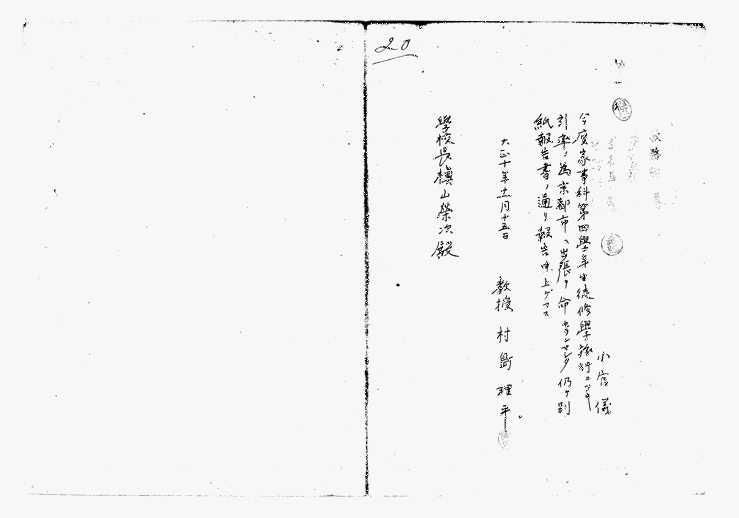 20
小官儀
今度家事科第四學年生徒修學旅行ニツキ
引率ノ為京都市ヘ出張ヲ命セラレ仍テ別
紙報告書ノ通リ報告申上ゲマス
大正十年十一月十五日
教授 村島理平
學校長槇山榮次殿